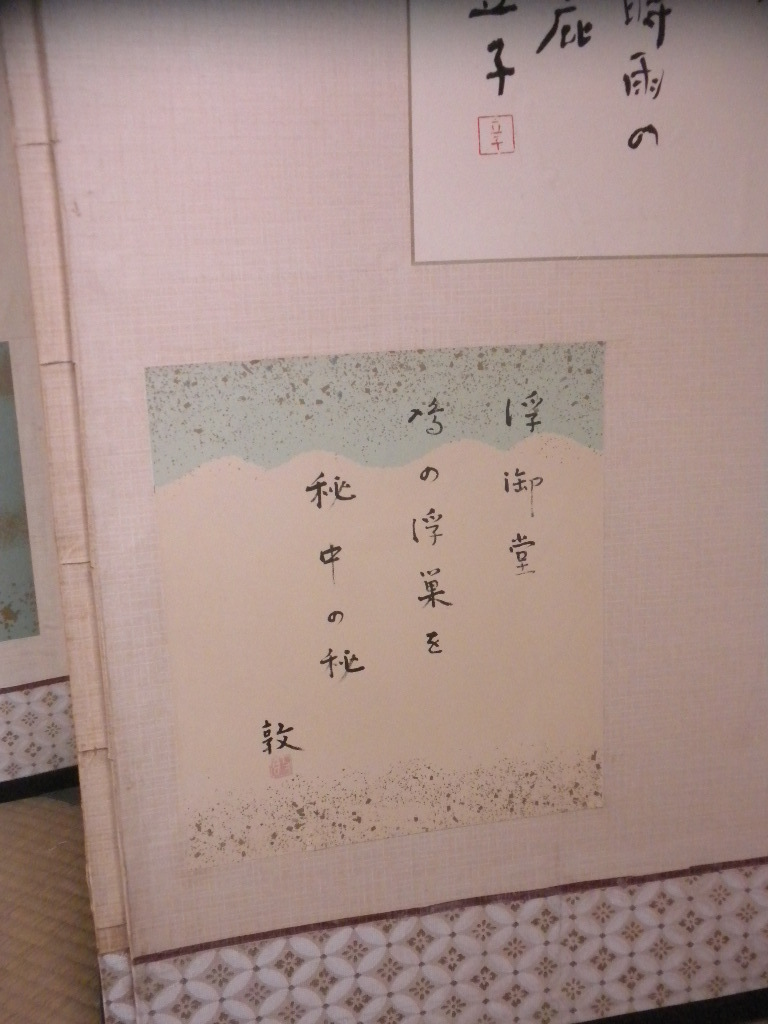 時雨の
鹿
立子
立子
浮御堂
鳰の浮巣を
秘中の秘
敦